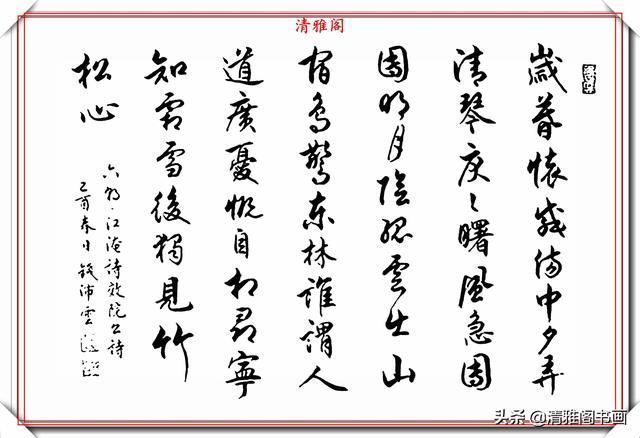 清雅阁
歲暮懷感傷中夕弄
清琴戾々曙風急團
團明月陰孤雲出山
宿鳥驚東林誰謂人
道廣憂慨自相尋寧
知霜雪後獨見竹
松心
六朝江淹詩效阮公詩
乙酉春日錢沛雲
头条 @清雅阁书画